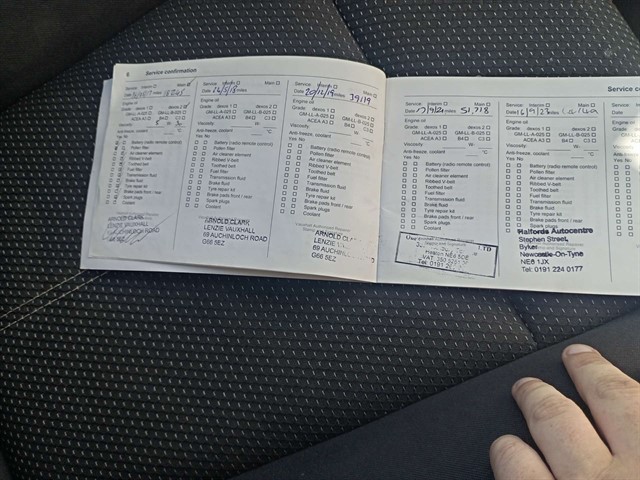 6 Service confirmation
Service Interim Main
Date miles
Engine oil
Grade: dexos 1 dexos 2
GM-LL-A-025 GM-LL-B-025
ACEA A3 B4 C3
Viscosity: W-
Anti-freeze, coolant °C
Yes No
Battery (radio remote control)
Pollen filter
Air cleaner element
Ribbed V-belt
Toothed belt
Fuel filter
Transmission fluid
Brake fluid
Tyre repair kit
Brake pads front / rear
Spark plugs
Coolant
Service Interim Main
Date 26/5/18 miles
Engine oil
Grade: dexos 1 dexos 2
GM-LL-A-025 GM-LL-B-025
ACEA A3 B4 C3
Viscosity: W-
Anti-freeze, coolant °C
Yes No
Battery (radio remote control)
Pollen filter
Air cleaner element
Ribbed V-belt
Toothed belt
Fuel filter
Transmission fluid
Brake fluid
Tyre repair kit
Brake pads front / rear
Spark plugs
Coolant
ARNOLD CLARK
LENZIE VAUXHALL
69 AUCHINLOCH ROAD
G66 5EZ
Service Interim Main
Date 20/12/19 miles 39119
Engine oil
Grade: dexos 1 dexos 2
GM-LL-A-025 GM-LL-B-025
ACEA A3 B4 C3
Viscosity: W-
Anti-freeze, coolant °C
Yes No
Battery (radio remote control)
Pollen filter
Air cleaner element
Ribbed V-belt
Toothed belt
Fuel filter
Transmission fluid
Brake fluid
Tyre repair kit
Brake pads front / rear
Spark plugs
Coolant
ARNOLD
LENZIE
69
G66 5EZ
Service c
Service Interim Main
Date miles 51,718
Engine oil
Grade: dexos 1 dexos 2
GM-LL-A-025 GM-LL-B-025
ACEA A3 B4 C3
Viscosity: W-
Anti-freeze, coolant °C
Yes No
Battery (radio remote control)
Pollen filter
Air cleaner element
Ribbed V-belt
Toothed belt
Fuel filter
Transmission fluid
Brake fluid
Tyre repair kit
Brake pads front / rear
Spark plugs
Coolant
LTD
Heaton NE6 5DE
VAT
Tel: 0191
Service Interim Main
Date miles
Engine oil
Grade: dexos 1 dexos 2
GM-LL-A-025 GM-LL-B-025
ACEA A3 B4 C3
Viscosity: W-
Anti-freeze, coolant °C
Yes No
Battery (radio remote control)
Pollen filter
Air cleaner element
Ribbed V-belt
Toothed belt
Fuel filter
Transmission fluid
Brake fluid
Tyre repair kit
Brake pads front / rear
Spark plugs
Coolant
Halfords Autocentre
Stephen Street,
Byker
Newcastle-On-Tyne
NE6 1JX
Tel: 0191 224 0177
Service
Date
Engine oil
Grade:
Viscosity
Anti-freeze
Yes No